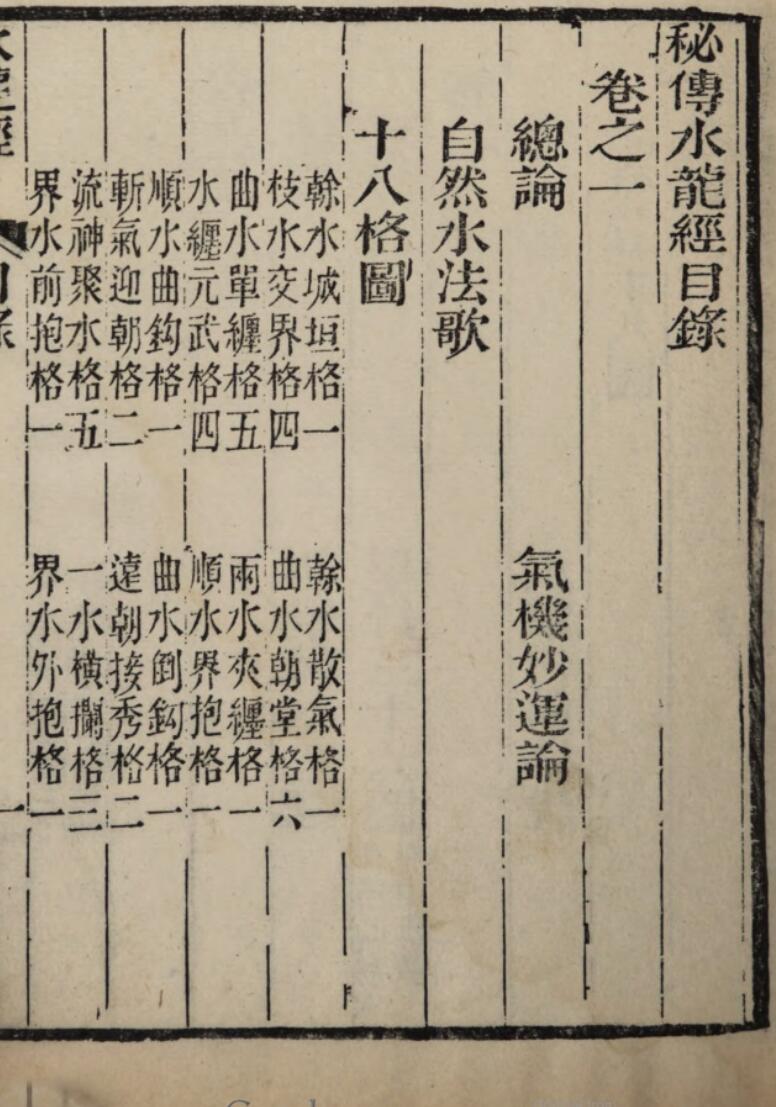 秘傳水龍經目錄
卷之一
總論 氣機妙運論
自然水法歌
十八格圖
榦水城垣格一 榦水散氣格一
枝水交界格四 曲水朝堂格六
曲水單纏格五 兩水夾纏格一
水纏元武格四 順水界抱格一
順水曲鈎格一 曲水倒鈎格一
斬氣迎朝格二 遠朝接秀格二
流神聚水格五 一水橫攔格三
界水前抱格一 界水外抱格一
水龍經 目錄 一